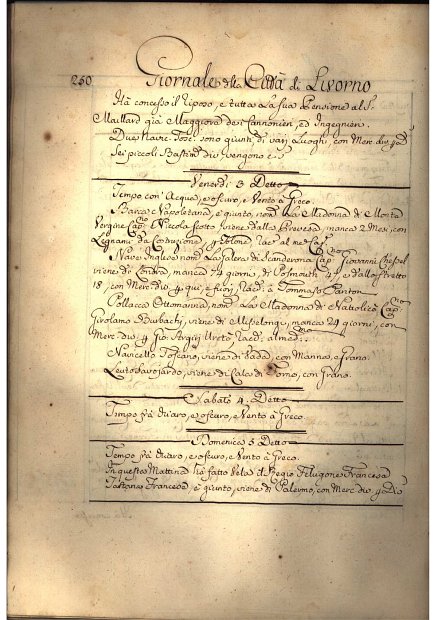 250 Giornale della Città di Livorno
Hà concesso il riposo, e tutta la sua Pensione al S.
Maillard già Maggiore de Cannonieri, ed Ingegnieri.
Due Navic. Tosc. sono giunti di varij Luoghi, con Merc. div., ed
Sei piccoli Bastim.
Venerdi 3 Detto
Tempo con Acqua, e oscuro, e Vento à Greco.
Barca Napoletana, è giunto, nom. La Madonna di Monte
Vergine Cap. Nicola Scotto, viene dalla Prevesa, manca 2 Mesi, con
Legnami da Costruzione, e Rac. al med. Cap.
Nave Inglese nom. La Galera di Scanderona, Cap. Giovanni
viene di Londra, manca 74 giorni, di Posmouth 4, e dallo Stretto
18, con Merc. div. p. qui, e fuori, Racd. à Tommaso Panton
Pollacca Ottomanna, nom. La Madonna di Nattolicò Cap.
Girolamo viene di Missolongi, manca 24 giorni, con
Merc. div. p. Gio. Racd. al med.
Navicello Toscano, viene di Vada, con Manna, e Grano.
Leuto Savojardo, viene di Cala di Forno, con Grano.
Sabato 4. Detto
Tempo frà chiaro, e oscuro, e Vento à Greco.
Domenica 5 Detto
Tempo frà chiaro, e oscuro, e Vento à Greco.
In questa Mattina hà fatto Vela il Regio Felugone Francese
Tartana Francese, è giunto, viene di Palermo, con Merc. div.